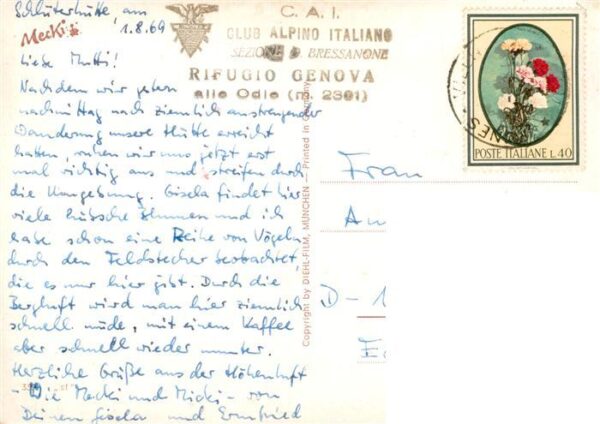 Schlüterhütte, am
1.8.69
Mecki
Liebe Mutti!
Nachdem wir gestern
nachmittag nach ziemlich anstrengender
Wanderung unsere Hütte erreicht
hatten, ruhen wir uns jetzt erst
mal richtig aus und streifen durch
die Umgebung. Gisela findet hier
viele hübsche Blumen und ich
habe schon eine Reihe von Vögeln
durch den Feldstecher beobachtet
die es nur hier gibt. Durch die
Bergluft wird man hier ziemlich
schnell müde, mit einem Kaffee
aber schnell wieder munter.
Herzliche Grüße aus der Höhenluft
- Die Mecki und Micki - von
Deinen Gisela und Ermfried
C. A. I.
CLUB ALPINO ITALIANO
SEZIONE D. BRESSANONE
RIFUGIO GENOVA
alle Odle (m. 2301)
Copyright by DIEHL-FILM, MÜNCHEN - Printed in Germany
POSTE ITALIANE L.40
Frau
An
D - 1